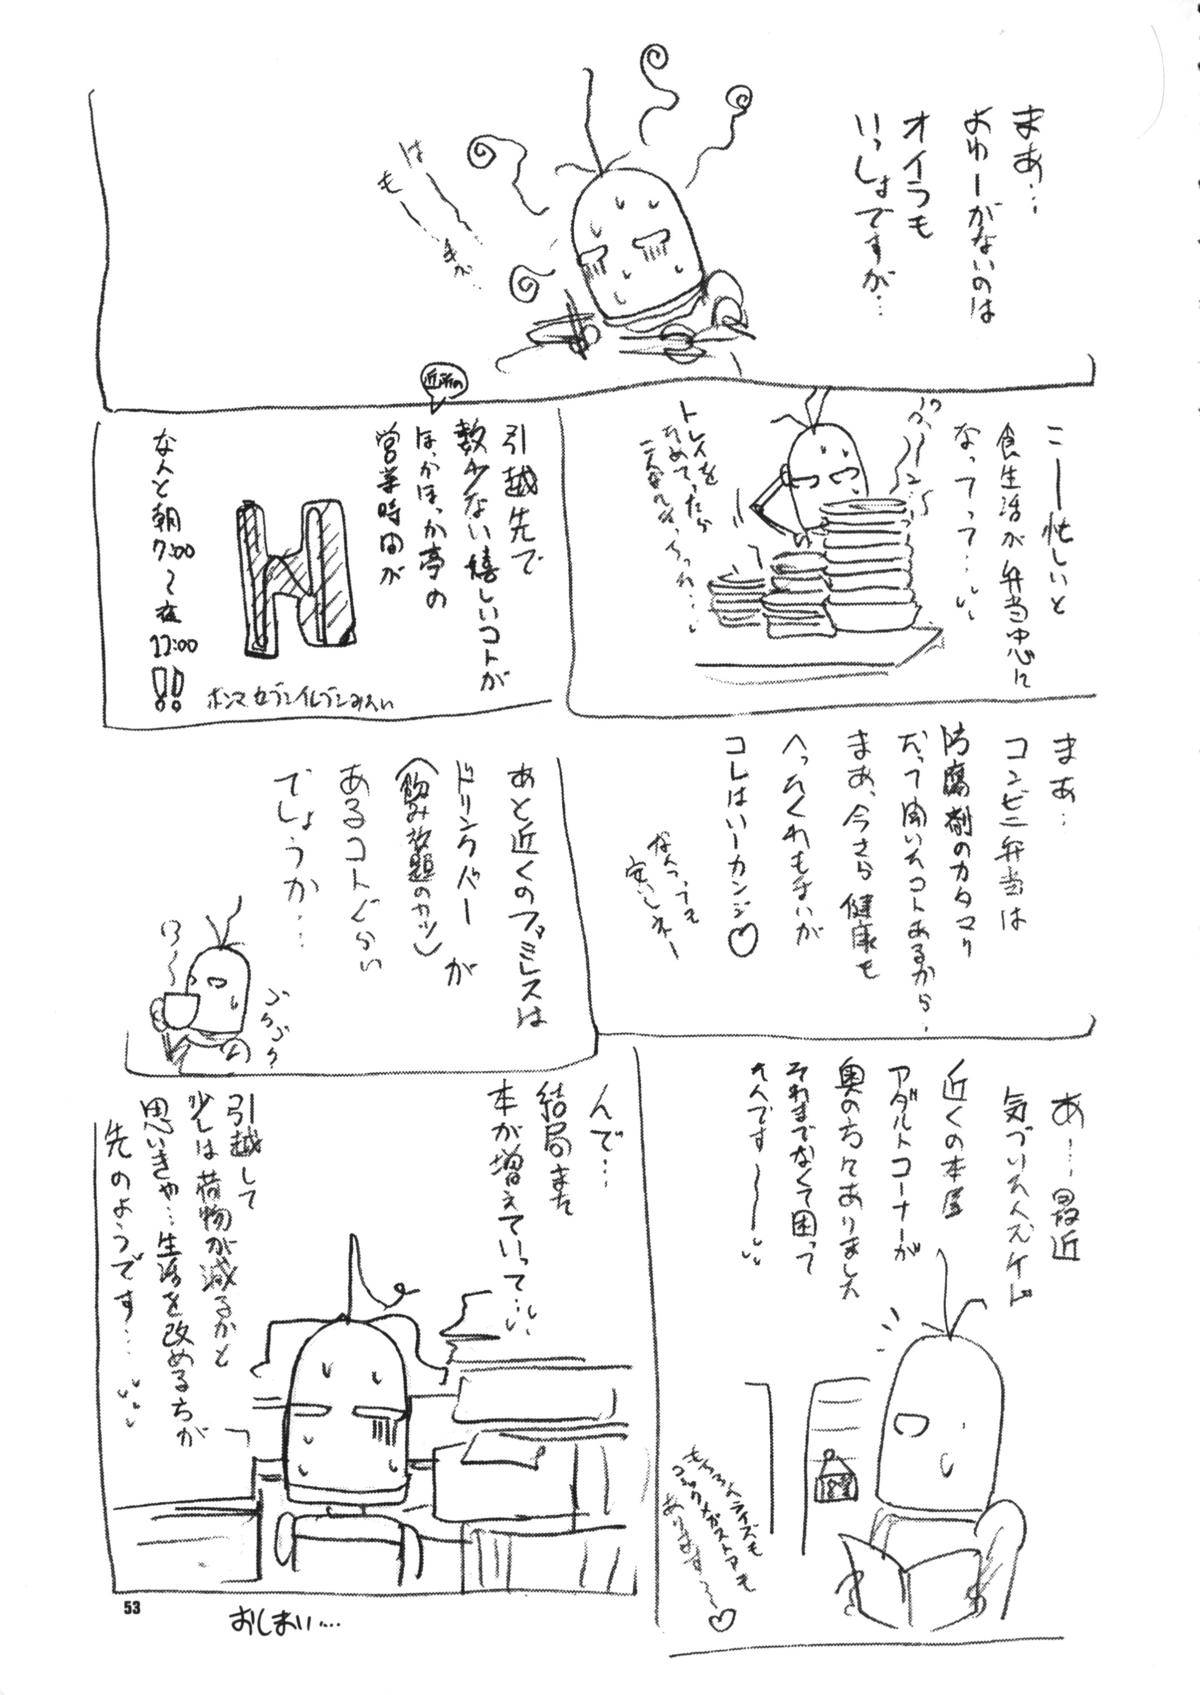 まあ…
よゆーがないのは
オイラも
いっしょですが…
は
も
こー忙しいと
食生活が弁当中心に
なってって…
トレイを
ためてったら
引越先で
数少ない嬉しいコトが
近所の
ほっかほっか亭の
営業時間が
H
なんと朝
7:00
〜夜
11:00
!!
ホンマセブンイレブンみたい
まあ…
コンビニ弁当は
防腐剤のカタマリ
だって聞いたコトあるから、
まあ、今さら健康も
へったくれもないが
コレはいーカンジ♡
なんつっても
安いしネー
あと近くのファミレスは
ドリンクバーが
(飲み放題のヤツ)
あるコトぐらい
でしょうか…
あ…最近
気づいたんだケド
近くの本屋
アダルトコーナーが
奥の方にありました
それまでなくて困って
たんです〜
コミックメガストアも
あります〜♡
んで…
結局また
本が増えていって…
引越して
少しは荷物が減るかと
思いきや…生活を改める方が
先のようです…
53
おしまい…